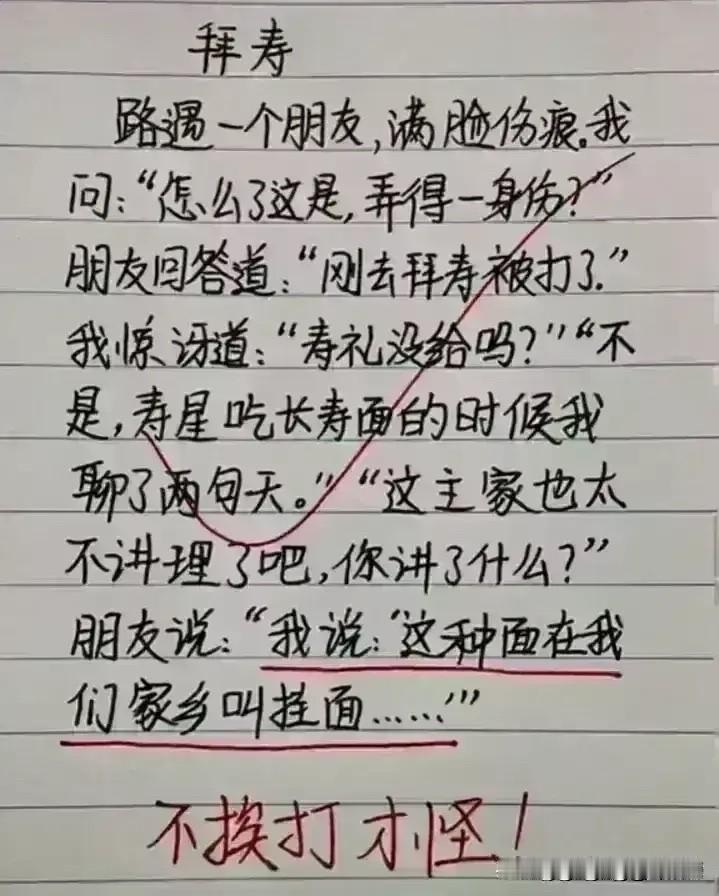 拜寿
路遇一个朋友,满脸伤痕。我
问:“怎么了这是,弄得一身伤?”
朋友回答道:“刚去拜寿被打了.”
我惊讶道:“寿礼没给吗?”“不
是,寿星吃长寿面的时候我
聊了两句天。”“这主家也太
不讲理了吧,你讲了什么?”
朋友说:“我说:‘这种面在我
们家乡叫挂面……’”
不挨打才怪!